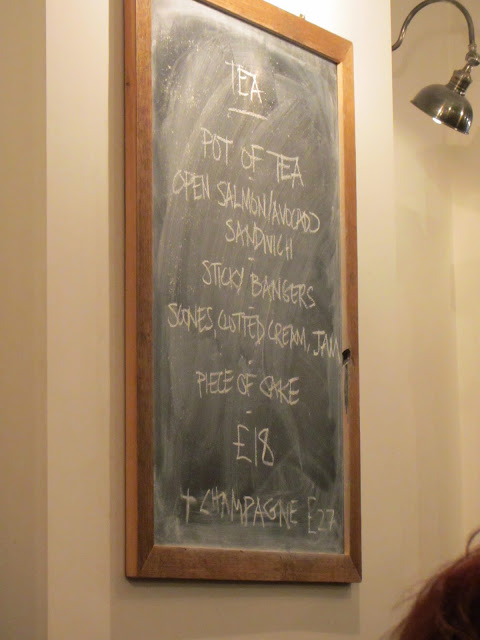 TEA
POT OF TEA
OPEN SALMON/AVOCADO
SANDWICH
-
STICKY BANGERS
-
SCONES, CLOTTED CREAM, JAM
-
PIECE OF CAKE
-
£18
+ CHAMPAGNE £27